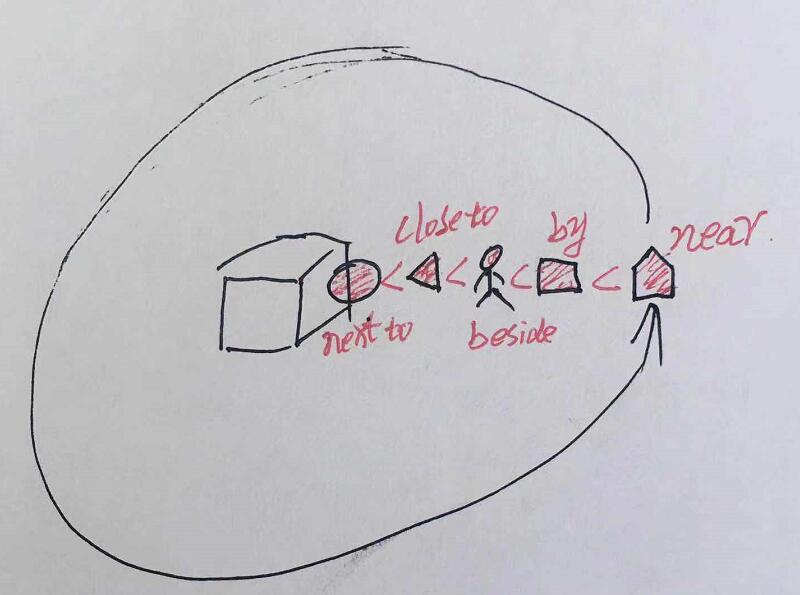 close to
by
near.
< < < <
next to
beside